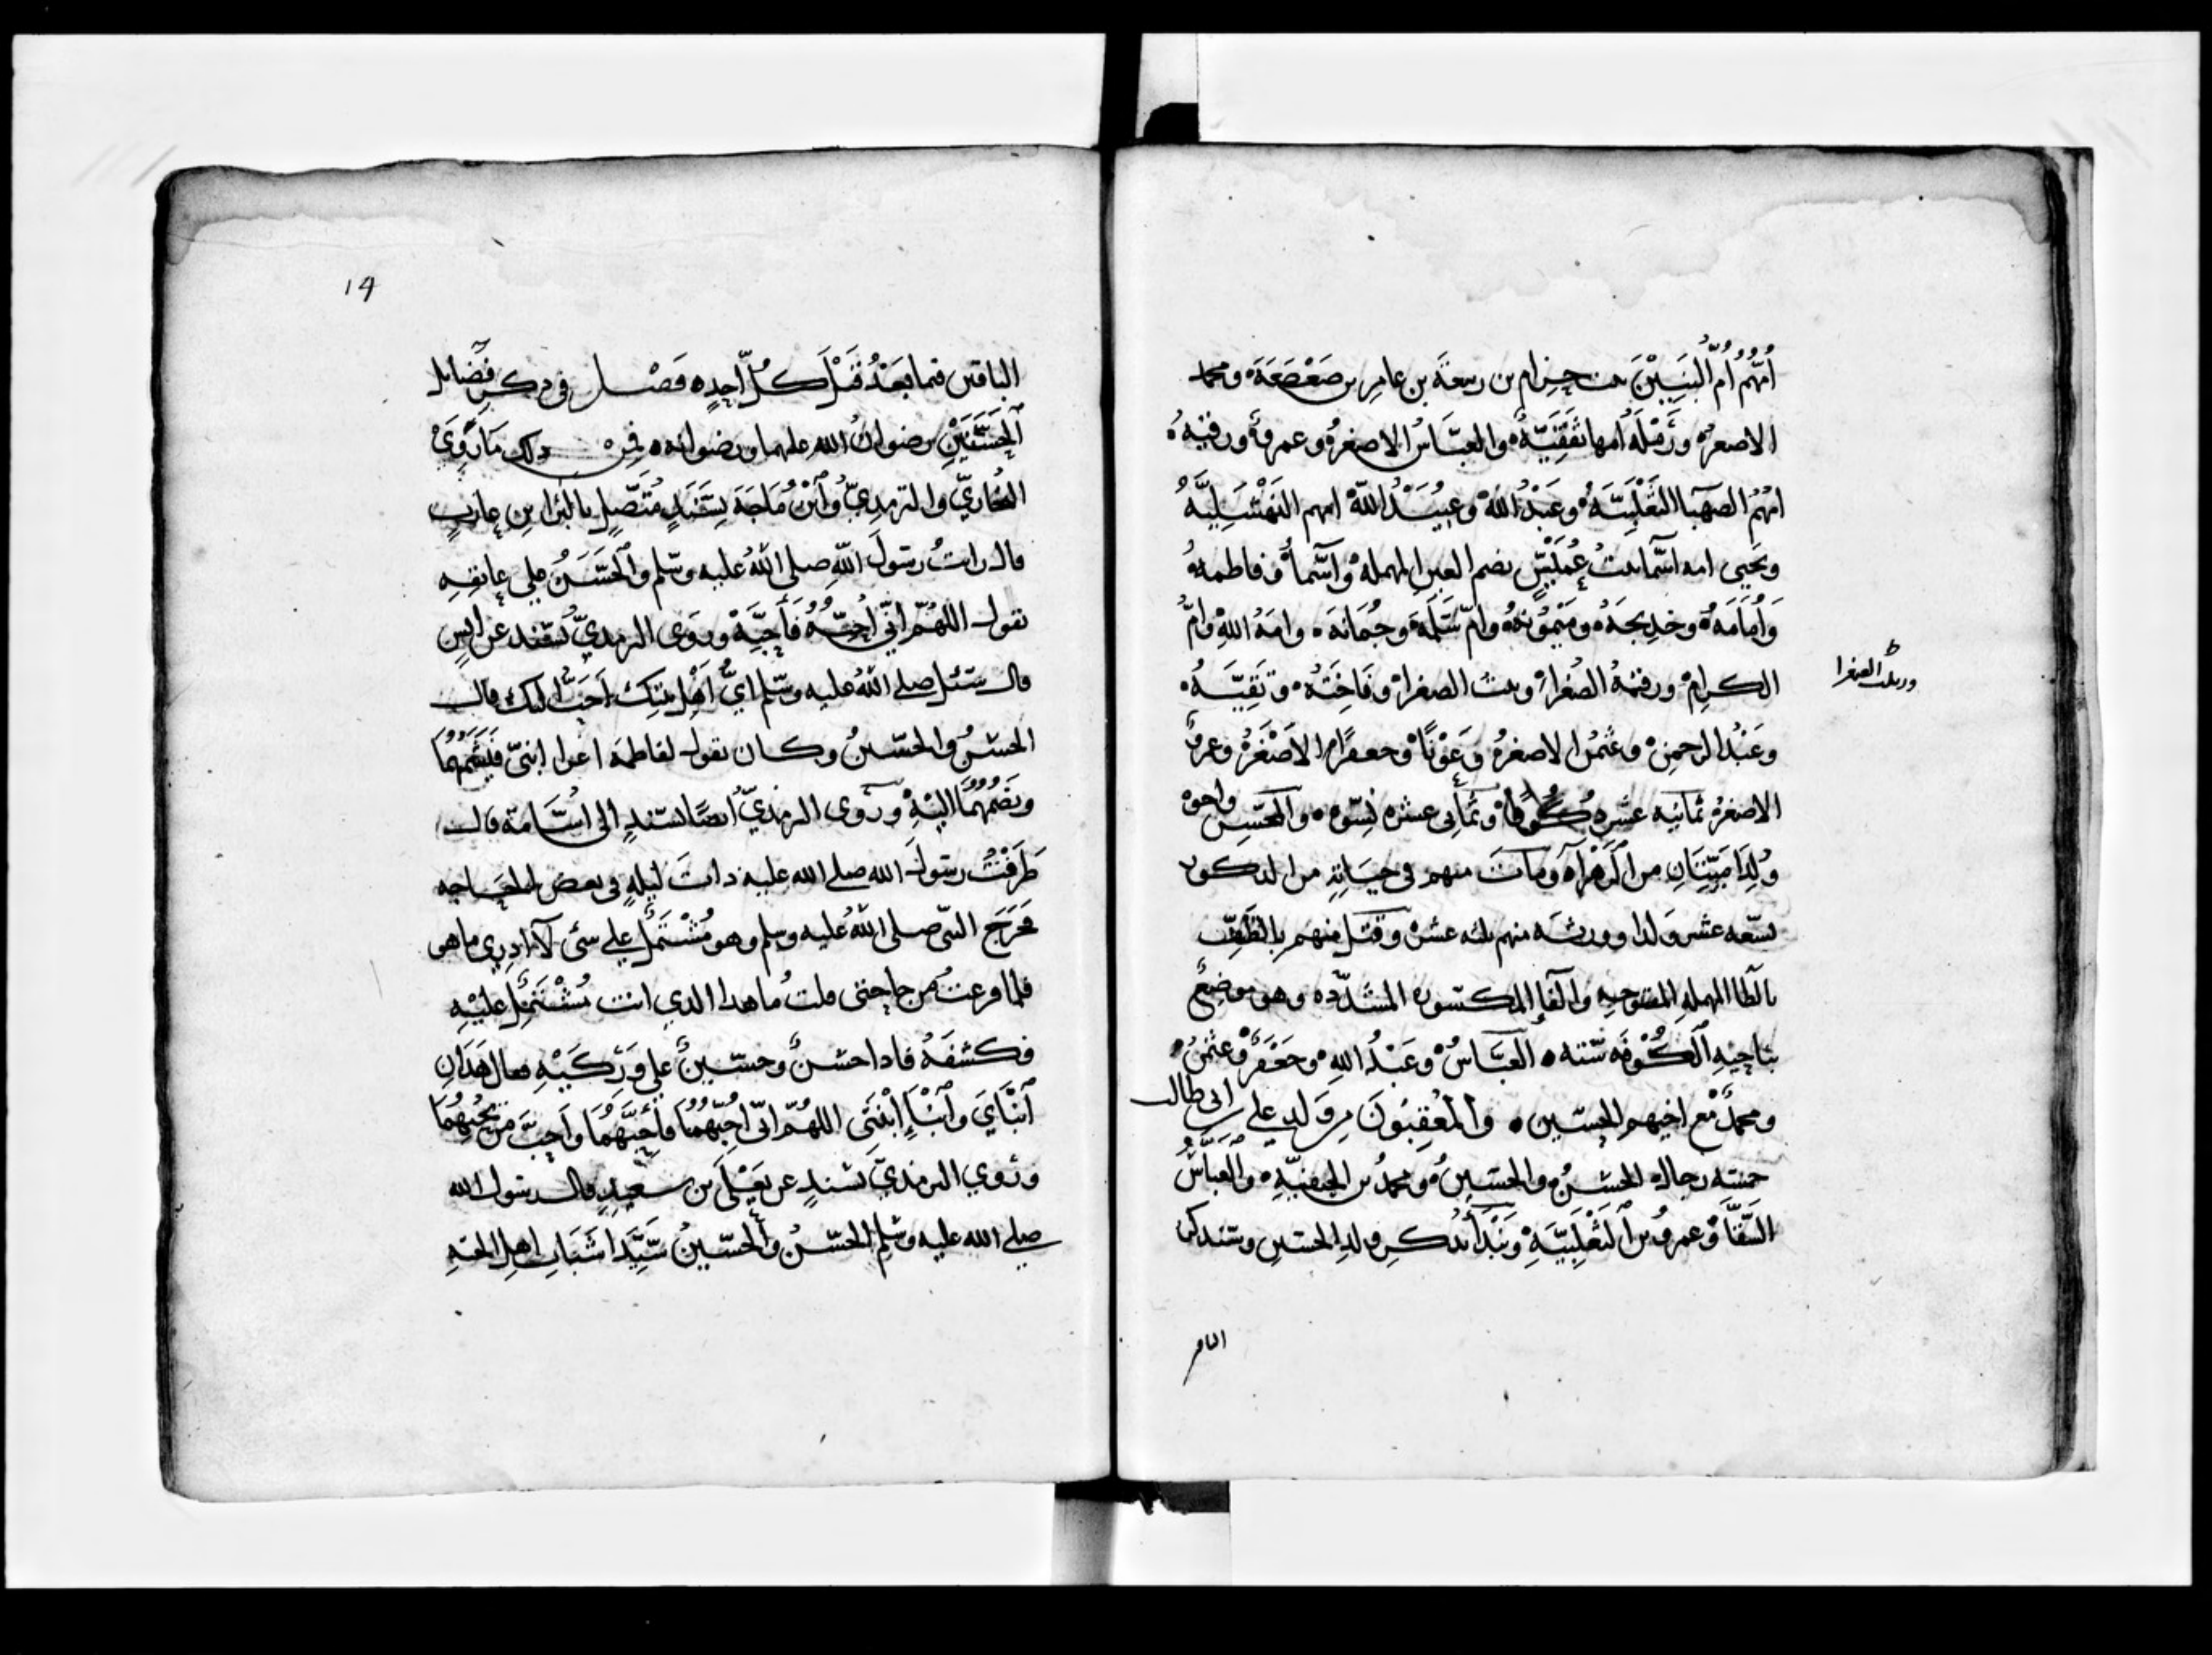 أُمُّهُم أُمّ الْبَنِيْنَ بنت حِزام بن ربيعة بن عامر بن صَعْصَعَة ومحمد
الاصغر ورَمْلَة أمها ثَقَفِيَّة والعبّاس الاصغر وعمرو ورقية
امهم الصهبا التَغْلَبِيّة وعَبْدُ الله وعُبَيْدُ الله امهم النَهْشَلِيَّة
ويحيى امه اسما بنت عُمَيْسٍ بضم العين المهمله وأسما وفاطمة
وأُمَامَة وخديجة ومَيْمُونة وام سَلَمَة وجُمَانَة وامة الله وامّ
الكرام ورقية الصغرا وبنت الصغرا وفاخِتَة وتَقِيَّة
وردلك الصغرا
وعَبْدُ الرحمن وعثمن الاصغر وعَوْنًا وجعفرًا الاصْغَر وعمرو
الاصغر ثمانية عشر وثمانى عشره نِسْوه والحسين واخوه
وُلِدَا مَيِّتَانِ من الزهرآء ومات منهم في حياته من الدكور
تسعه عشر ولدا وورثه منهم ثلثه عشر وقتل منهم بالطَّفِّ
بالطا المهمله المفتوحه والفا المكسوره المشدّده وهو موضع
بناحيه الكُوْفَه ستّه العبّاسُ وعَبْدُ الله وجَعْفَر وعُثمن
ومحمدٌ مع اخيهم الحسين والمُعْقِبُونَ من ولد علي ابى طالب
خمسه رجال الحَسَنُ والحسين ومحمد بن الحنفيّة والعباس
السَّقَّا وعمرو من التَغْلَبِيَّةِ ونَبْدأ بذكر ولد الحسين وسنذكر
الباقين
14
الباقين فيما بَعْدُ قَبْلَ كُلِّ أحدٍ فَصْل في دكر فضائل
الحَسَنَيْنِ رضوان الله عليهما ورضوانه فمن دلك مَا رَوَى
البخاريّ والترمديّ وابْن مَاجَة بسَنَدٍ مُتَّصِلٍ بالبَرَا بن عازب
قال رايت رسول الله صلى الله عليه وسلم والحَسَن على عاتقه
يقول اللهُمّ انّى أُحِبُّه فَأَحِبَّه وروى الترمديّ بسند عن انس
قال سئل صلى الله عليه وسلم ايُّ أَهْلِ بيتِكَ أحَبُّ اليك قال
الحسن والحسين وكان يقول لفاطمة ادعوا ابنيّ فيشمهما
ويضمهما اليه وروى الترمديّ ايضًا بسندٍ الى اسَامة قال
طَرَقْتُ رسول الله صلى الله عليه دات ليله في بعض الحاجه
فخَرَجَ النبى صلى الله عليه وسلم وهو مُشْتَمِل على شي لآ ادري ما هو
فلما فرغت من حاجتي قلت ما هدا الدي انت مُشْتَمِل عليه
فكشفه فادا حسن وحسين على وَرِكَيْهِ فقال هَدَانِ
ابْنَايَ وابْنَا ابْنَتِي اللهُمّ انّى أُحِبُّهُمَا فأَحِبَّهُمَا وأحِبَّ مَنْ يُحِبُّهُمَا
وروي الترمديّ بسندٍ عن يَعْلَى بن سعيدٍ قال رسول الله
صلى الله عليه وسلم الحَسَن والحُسَيْن سَيِّدَا شَبَابِ اهل الجنه